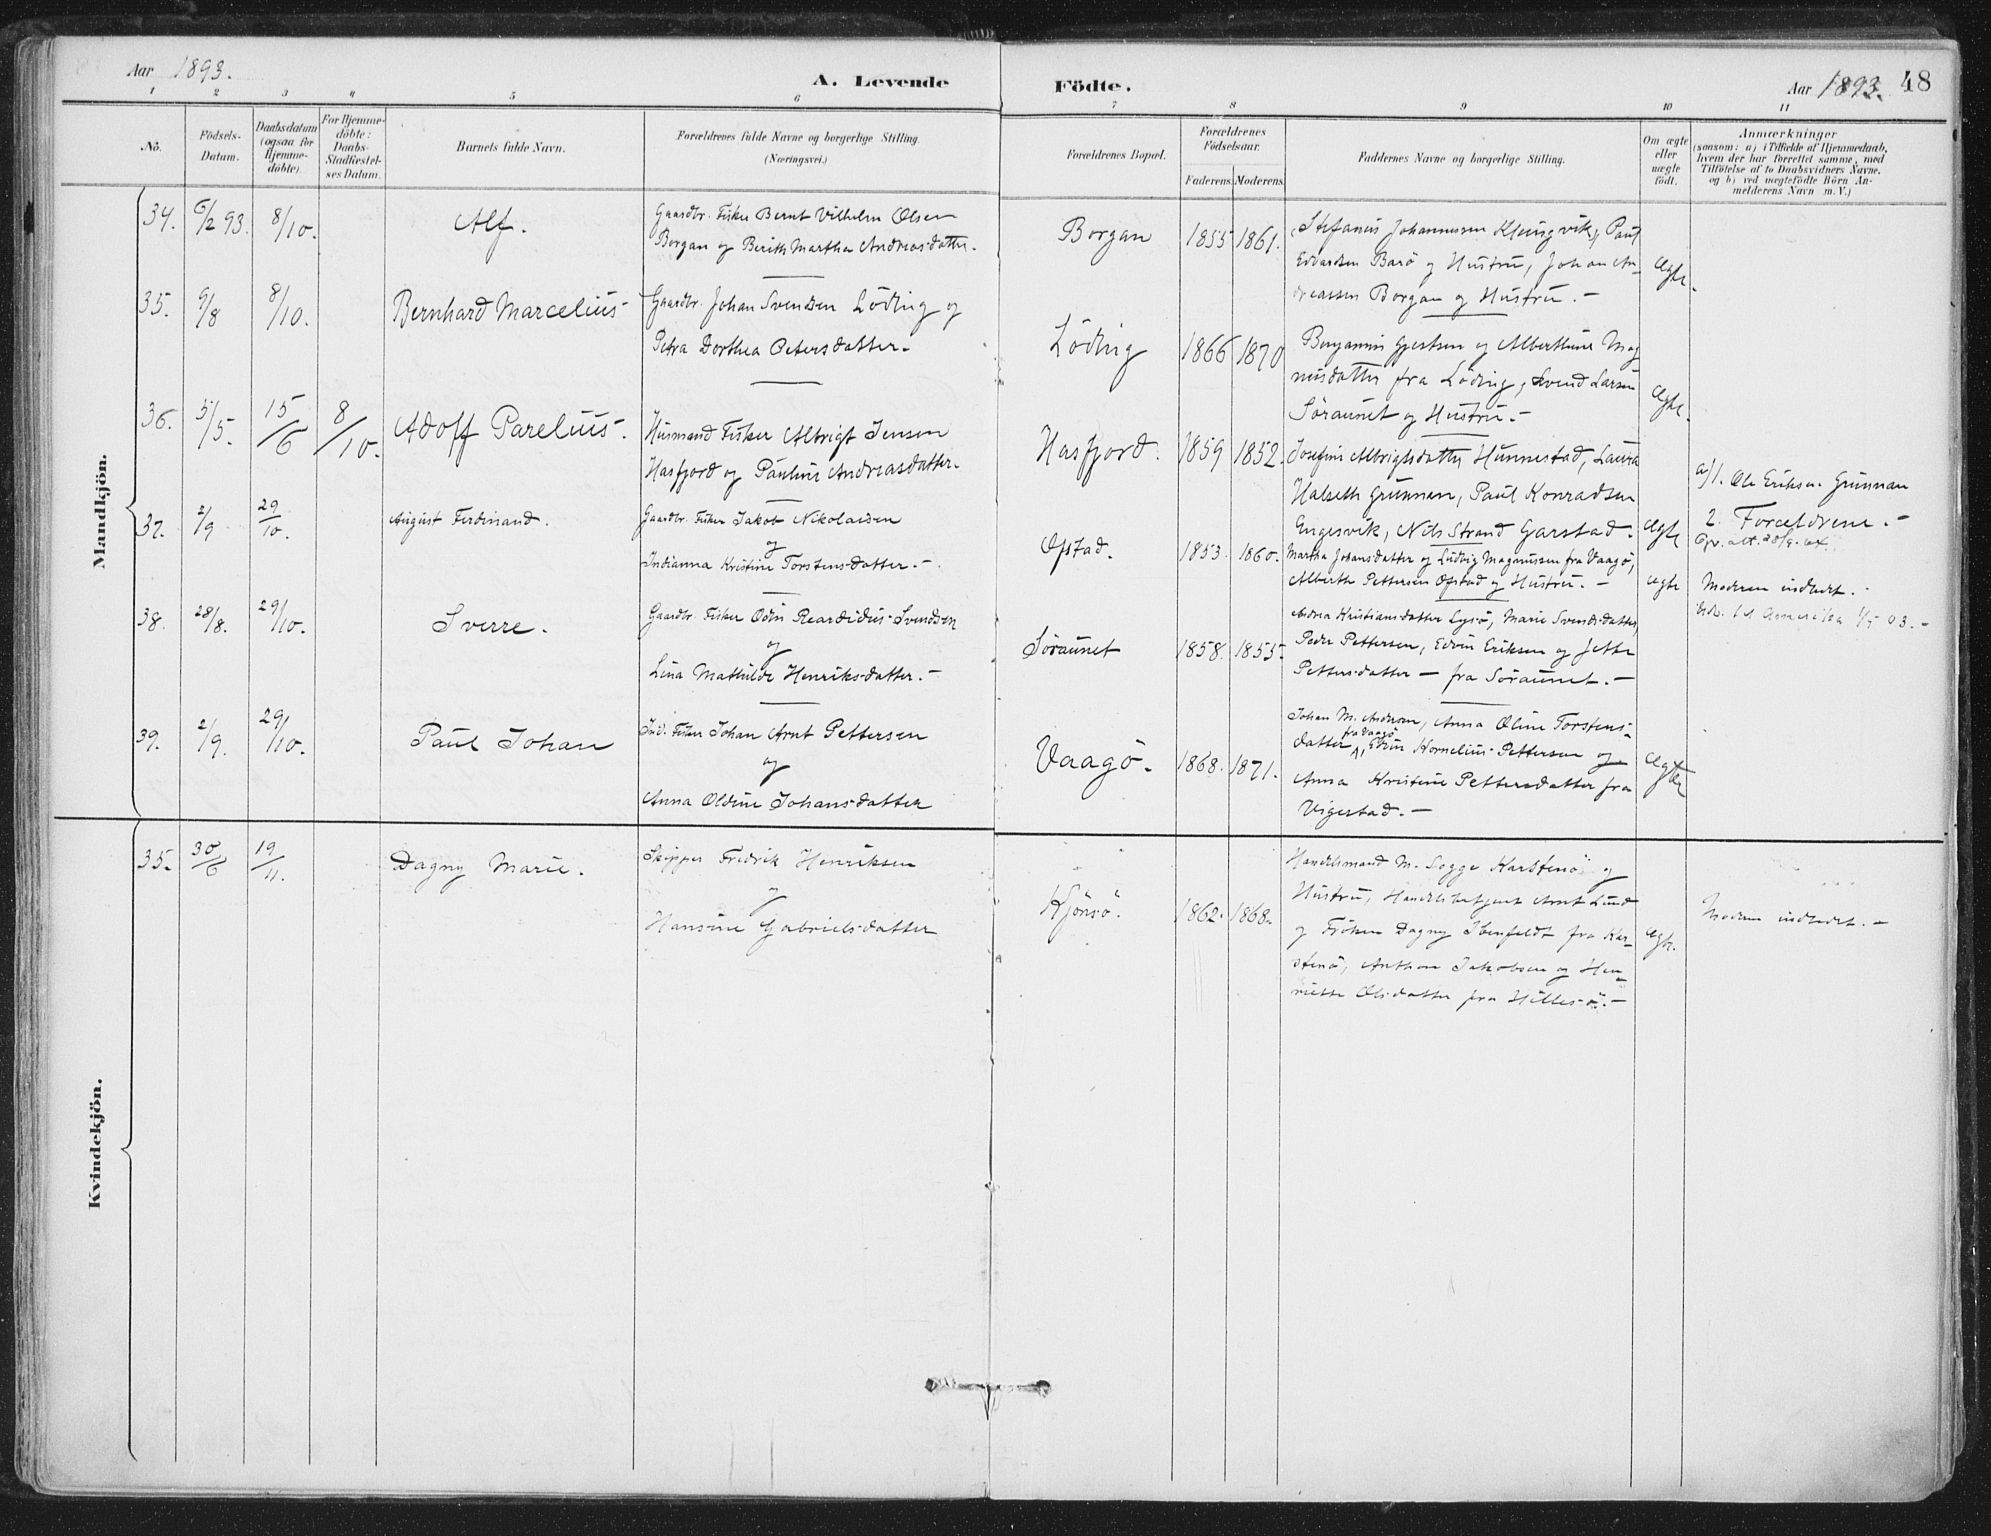 Aar 1893.
A. Levende
Födte.
Aar 1893.
48
1 2 3 4 5 6 7 8 9 10 11
No.
Födsels-Datum.
Daabsdatum (ogsaa for Hjemmedöbte).
For Hjemmedöbte: Daabs-Stadfæstelses Datum.
Barnets fulde Navn.
Forældrenes fulde Navne og borgerlige Stilling. (Næringsvei.)
Forældrenes Bopæl.
Forældrenes Födselsaar.
Faderens. Moderens.
Faddernes Navne og borgerlige Stilling.
Om ægte eller uægte födt.
Anmærkninger
(saasom: a) i Tilfælde af Hjemmedaab, hvem der har forrettet samme, med Tilföielse af to Daabsvidners Navne, og b) ved uægtefödte Börn Anmelderens Navn m. V.)
Mandkjön.
34. 6/2 93. 8/10. Alf.
Gaardbr. Fisker Bernt Vilhelm Olsen
Borgan og Berith Martha Andreasdatter.
Borgan 1855 1861.
Stefanus Johannessen Kleingvik, Paul
Edvardsen Barö og Hustru, Johan An-
dreassen Borgan og Hustru. —
Ægte.
35. 9/8 8/10. Bernhard Marcelius
Gaardbr. Johan Svendsen Löding og
Petra Dorthea Petersdatter.
Löding 1866 1870
Benjamin Gjertsen og Alberthine Mag
nusdatter fra Löding, Svend Larsen
Söraunet og Hustru. —
Ægte.
36. 5/5. 15/6 8/10. Adolf Parelius.
Husmand Fisker Albrigt Jensen
Hasfjord og Pauline Andreasdatter.
Hasfjord. 1859 1852.
Josefine Albrigtsdatter Hunnestad, Laura
Halseth Grunnan, Paul Konradsen
Engesvik, Nils Strand Garstad.
Ægte
a/1. Ole Eriksen Grunnan
2. Forældrene. —
37. 2/9 29/10. August Ferdinand.
Gaardbr. Fisker Jakob Nikolaisen
og
Indianna Kristine Torstensdatter. —
Opstad. 1853. 1860.
Martha Johansdatter og Ludvig Magnussen fra Vaagö,
Alberth Pettersen Opstad og Hustru. —
ægte
Moderen indledt.
38. 28/8. 29/10. Sverre.
Gaardbr. Fisker Odin Svendsen
og
Lina Mathilde Henriksdatter. —
Söraunet 1858. 1855.
Andrea Kristiansdatter Lysö, Marie Svendsdatter,
Peder Pettersen, Edvin Eriksen og Jette
Pettersdatter — fra Söraunet. —
39. 2/9. 29/10. Paul Johan
Ind. Fisker Johan Arnt Pettersen
og
Anna Oldine Johansdatter
Vaagö. 1868. 1871.
Johan M. Andersen, Anna Oline Torstens-
datter fra Vaagö, Edvin Kornelius Pettersen og
Anna Kristine Pettersdatter fra
Vigestad. —
Ægte
Kvindekjön.
35. 30/6 19/11. Dagny Marie.
Skipper Fredrik Henriksen
og
Hansine Gabrielsdatter
Kjönsö. 1862. 1868.
Handelsmand M. Sogge Karstenö og
Hustru, Handelsbetjent Arnt Lund
og Fröken Dagny Ibenfeldt fra Kar-
stenö, Anthon Jakobsen og Hen-
riette Olsdatter fra Hillesö. —
Ægte.
Moderen indledet. —